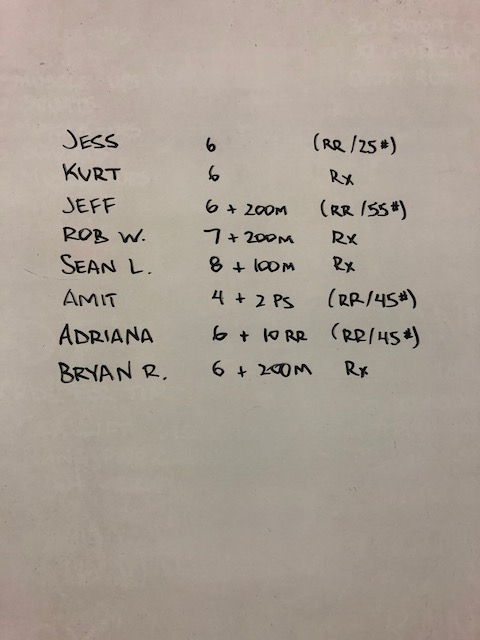 JESS 6 (RR/25#)
KURT 6 Rx
JEFF 6 + 200M (RR/55#)
ROB W. 7 + 200M Rx
SEAN L. 8 + 100M Rx
AMIT 4 + 2 PS (RR/45#)
ADRIANA 6 + 10 RR (RR/45#)
BRYAN R. 6 + 200M Rx